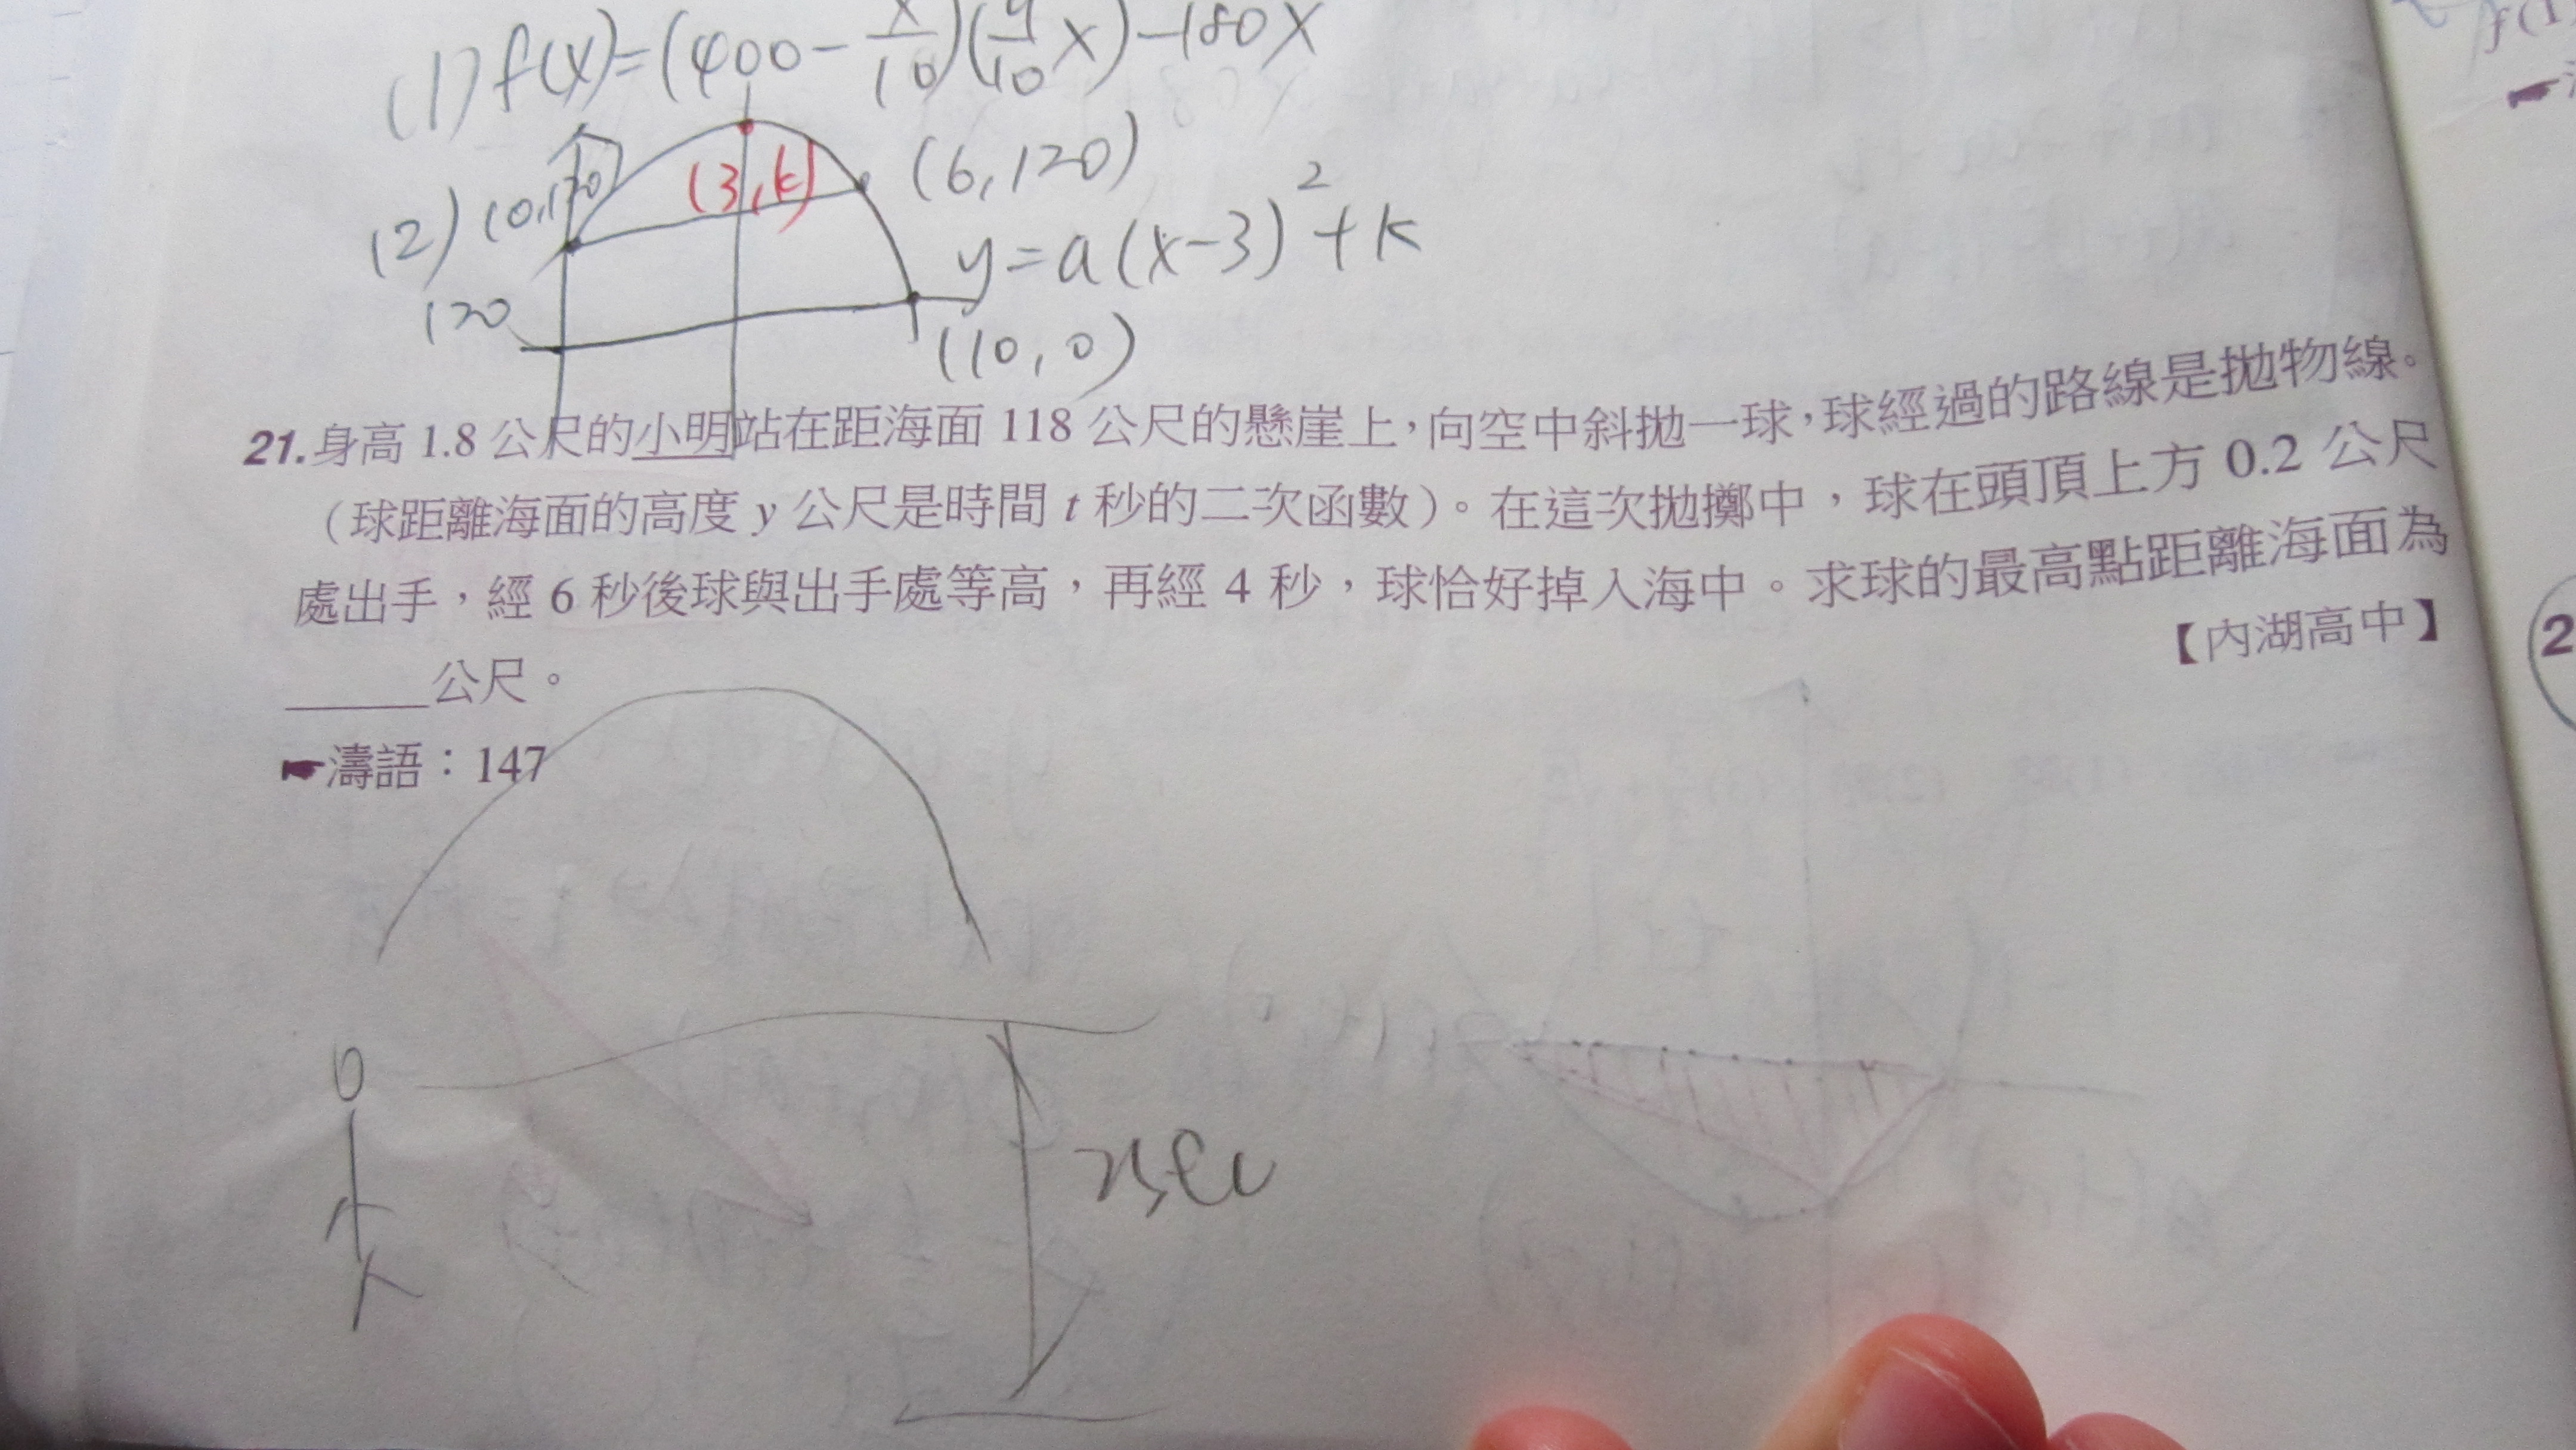 (1) f(x)=(400-x/10)(y/10 x)-180x
(3,k)
(6,120)
(2) (0,120)
y=a(x-3)²+k
120
(10,0)
21.身高 1.8 公尺的小明站在距海面 118 公尺的懸崖上，向空中斜拋一球，球經過的路線是拋物線。
（球距離海面的高度 y 公尺是時間 t 秒的二次函數）。在這次拋擲中，球在頭頂上方 0.2 公尺
處出手，經 6 秒後球與出手處等高，再經 4 秒，球恰好掉入海中。求球的最高點距離海面為
____公尺。
【內湖高中】
☛濤語：147
f(1
2